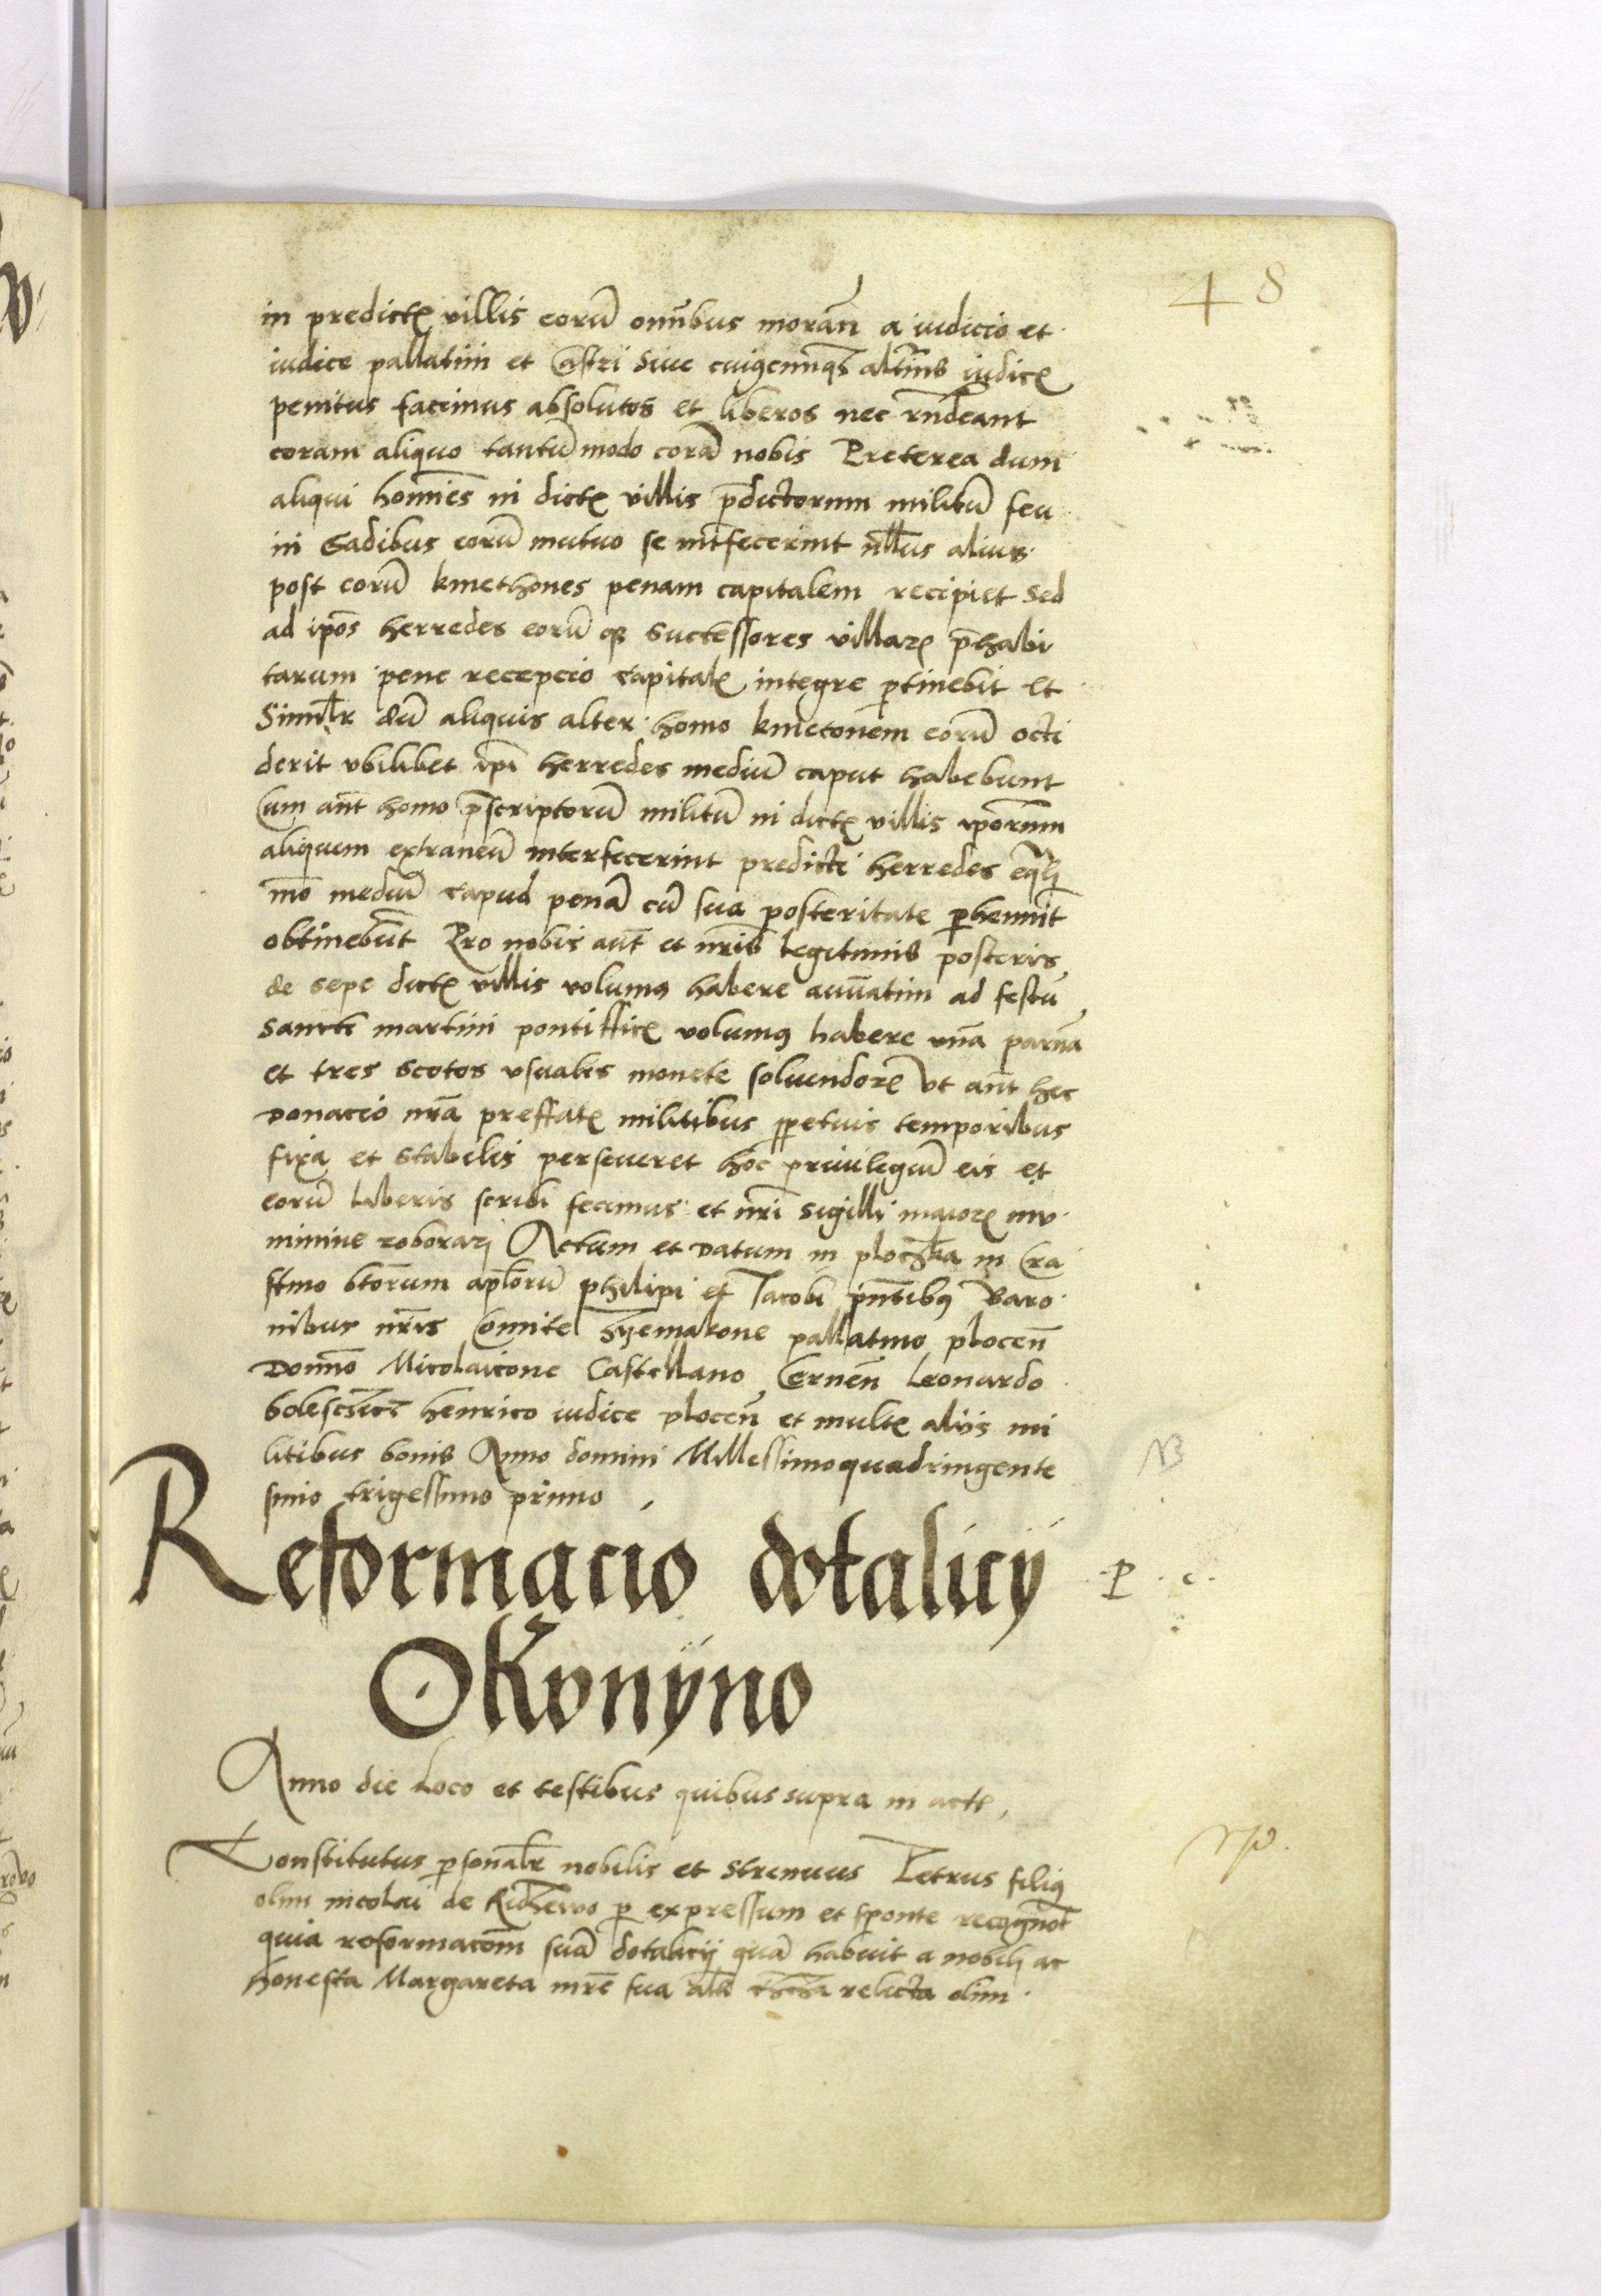 48
in predictꝭ villis eorū omībus morań a iudicio et
iudice pallatini et Castri siue cuiꝰcunqȝ altiꝰ iudicꝭ
penitus facimus absolutos et liberos nec rn̄deant
coram aliquo tantū modo corā nobis Preterea dum
aliqui homīes in dictꝭ villis p̄dictorum militū seu
in Gadibus eorū mutuo se intfecerint nłłus alius
post eorū kmethones penam capitalem recipiet sed
ad ip̄os herredes eorū qȝ successores villarꝭ p̄habi
tarum pene recepcio capitalꝭ integre ꝑtinebit Et
Simil̄r dū aliquis alter homo kmetonem eorū occi
derit vbilibet ip̄i herredes mediū caput habebunt
Cum aut̄ homo p̄scriptorū militū in dictꝭ villis ip̄orum
aliquem extraneū interfecerint predicti herredes eq̄li
mō mediū capud penā cū sua posteritate ꝑhennit̄
obtinebūt Pro nobis aut̄ et nr̄is legitimis posteris
de sepe dictꝭ villis volumꝰ habere annuatim ad festū
sancti martini pontifficꝭ volumꝰ habere vnā parnā
et tres scotos vsualis monete soluendorꝭ Vt aut̄ hec
donacio nr̄a preffatꝭ militibus ꝑpetuis temporibus
fixa et stabilis perseueret hoc priuilegiū eis et
eorū liberis scribi fecimus et nr̄i sigilli maiorꝭ mu
nimine roborari Actum et datum in ploczka in Cra
stino btōrum apl̄orū philipi et Jacobi pn̄tibꝰ Baro
nibus nr̄is Comite Syemakone pallatino plocen̄
Domīo Nicolaicone Castellano Cernen̄ Leonardo
henrico iudice plocen̄ et multꝭ aliis mi
litibus bonis Anno domini Millessimoquadringente
simo trigessimo primo
NB
Reformacio dotalicij
P. c.
Okvnyno
Anno die Loco et testibus quibus supra in actꝭ
Constitutus ꝑsonal̄r nobilis et strenuus Petrus filiꝰ
olim nicolai de ꝑ expressum et sponte recognōt
quia reformacōm suā dotalicij quā habuit a nobili ac
honesta Margareta mr̄e sua al̄s relicta olim